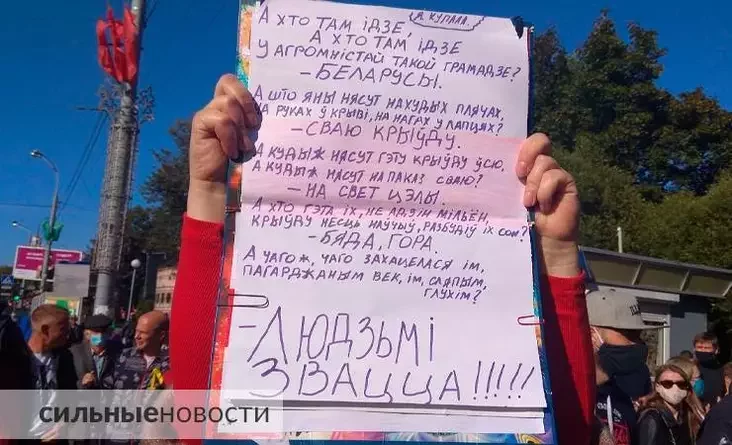 Я. КУПАЛА.
А ХТО ТАМ ІДЗЕ,
А ХТО ТАМ ІДЗЕ
У АГРОМНІСТАЙ ТАКОЙ ГРАМАДЗЕ?
– БЕЛАРУСЫ.
А ШТО ЯНЫ НЯСУТ НА ХУДЫХ ПЛЯЧАХ,
НА РУКАХ Ў КРЫВІ, НА НАГАХ У ЛАПЦЯХ?
– СВАЮ КРЫЎДУ.
А КУДЫ Ж НЯСУТ ГЭТУ КРЫЎДУ ЎСЮ,
А КУДЫ Ж НЯСУТ НА ПАКАЗ СВАЮ?
– НА СВЕТ ЦЭЛЫ.
А ХТО ГЭТА ІХ, НЕ АДЗІН МІЛЬЁН,
КРЫЎДУ НЕСЦЬ НАЎЧЫЎ, РАЗБУДІЎ ІХ СОН?
– БЯДА, ГОРА.
А ЧАГО Ж, ЧАГО ЗАХАЦЕЛАСЯ ІМ,
ПАГАРДЖАНЫМ ВЕК, ІМ, СЛЯПЫМ,
ГЛУХІМ?
– ЛЮДЗЬМІ
ЗВАЦЦА!!!!!
СИЛЬНЫЕНОВОСТИ